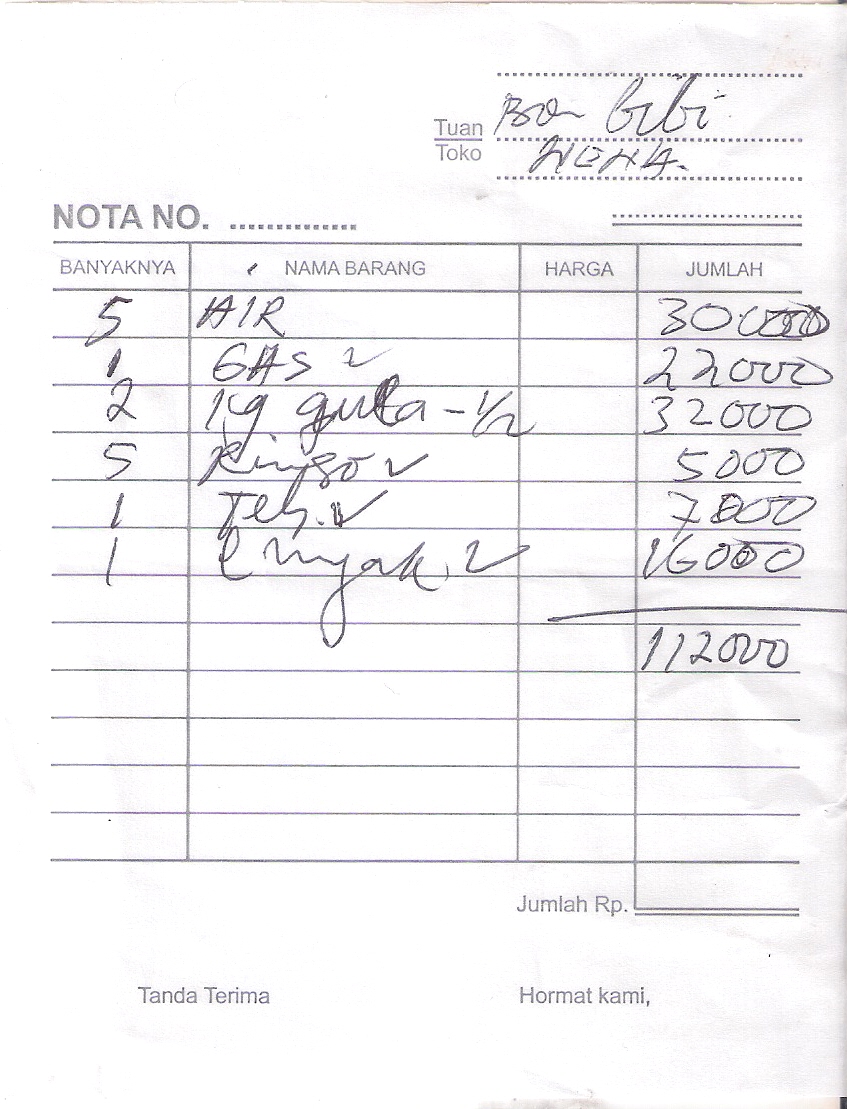 Tuan Bon Bibi
Toko
NOTA NO. ..............
BANYAKNYA NAMA BARANG HARGA JUMLAH
5 AIR 30000
1 GAS 22000
2 kg gula - 1/2 32000
5 Rinso 5000
1 Teh. 7000
1 minyak 16000
112000
Jumlah Rp.
Tanda Terima Hormat kami,